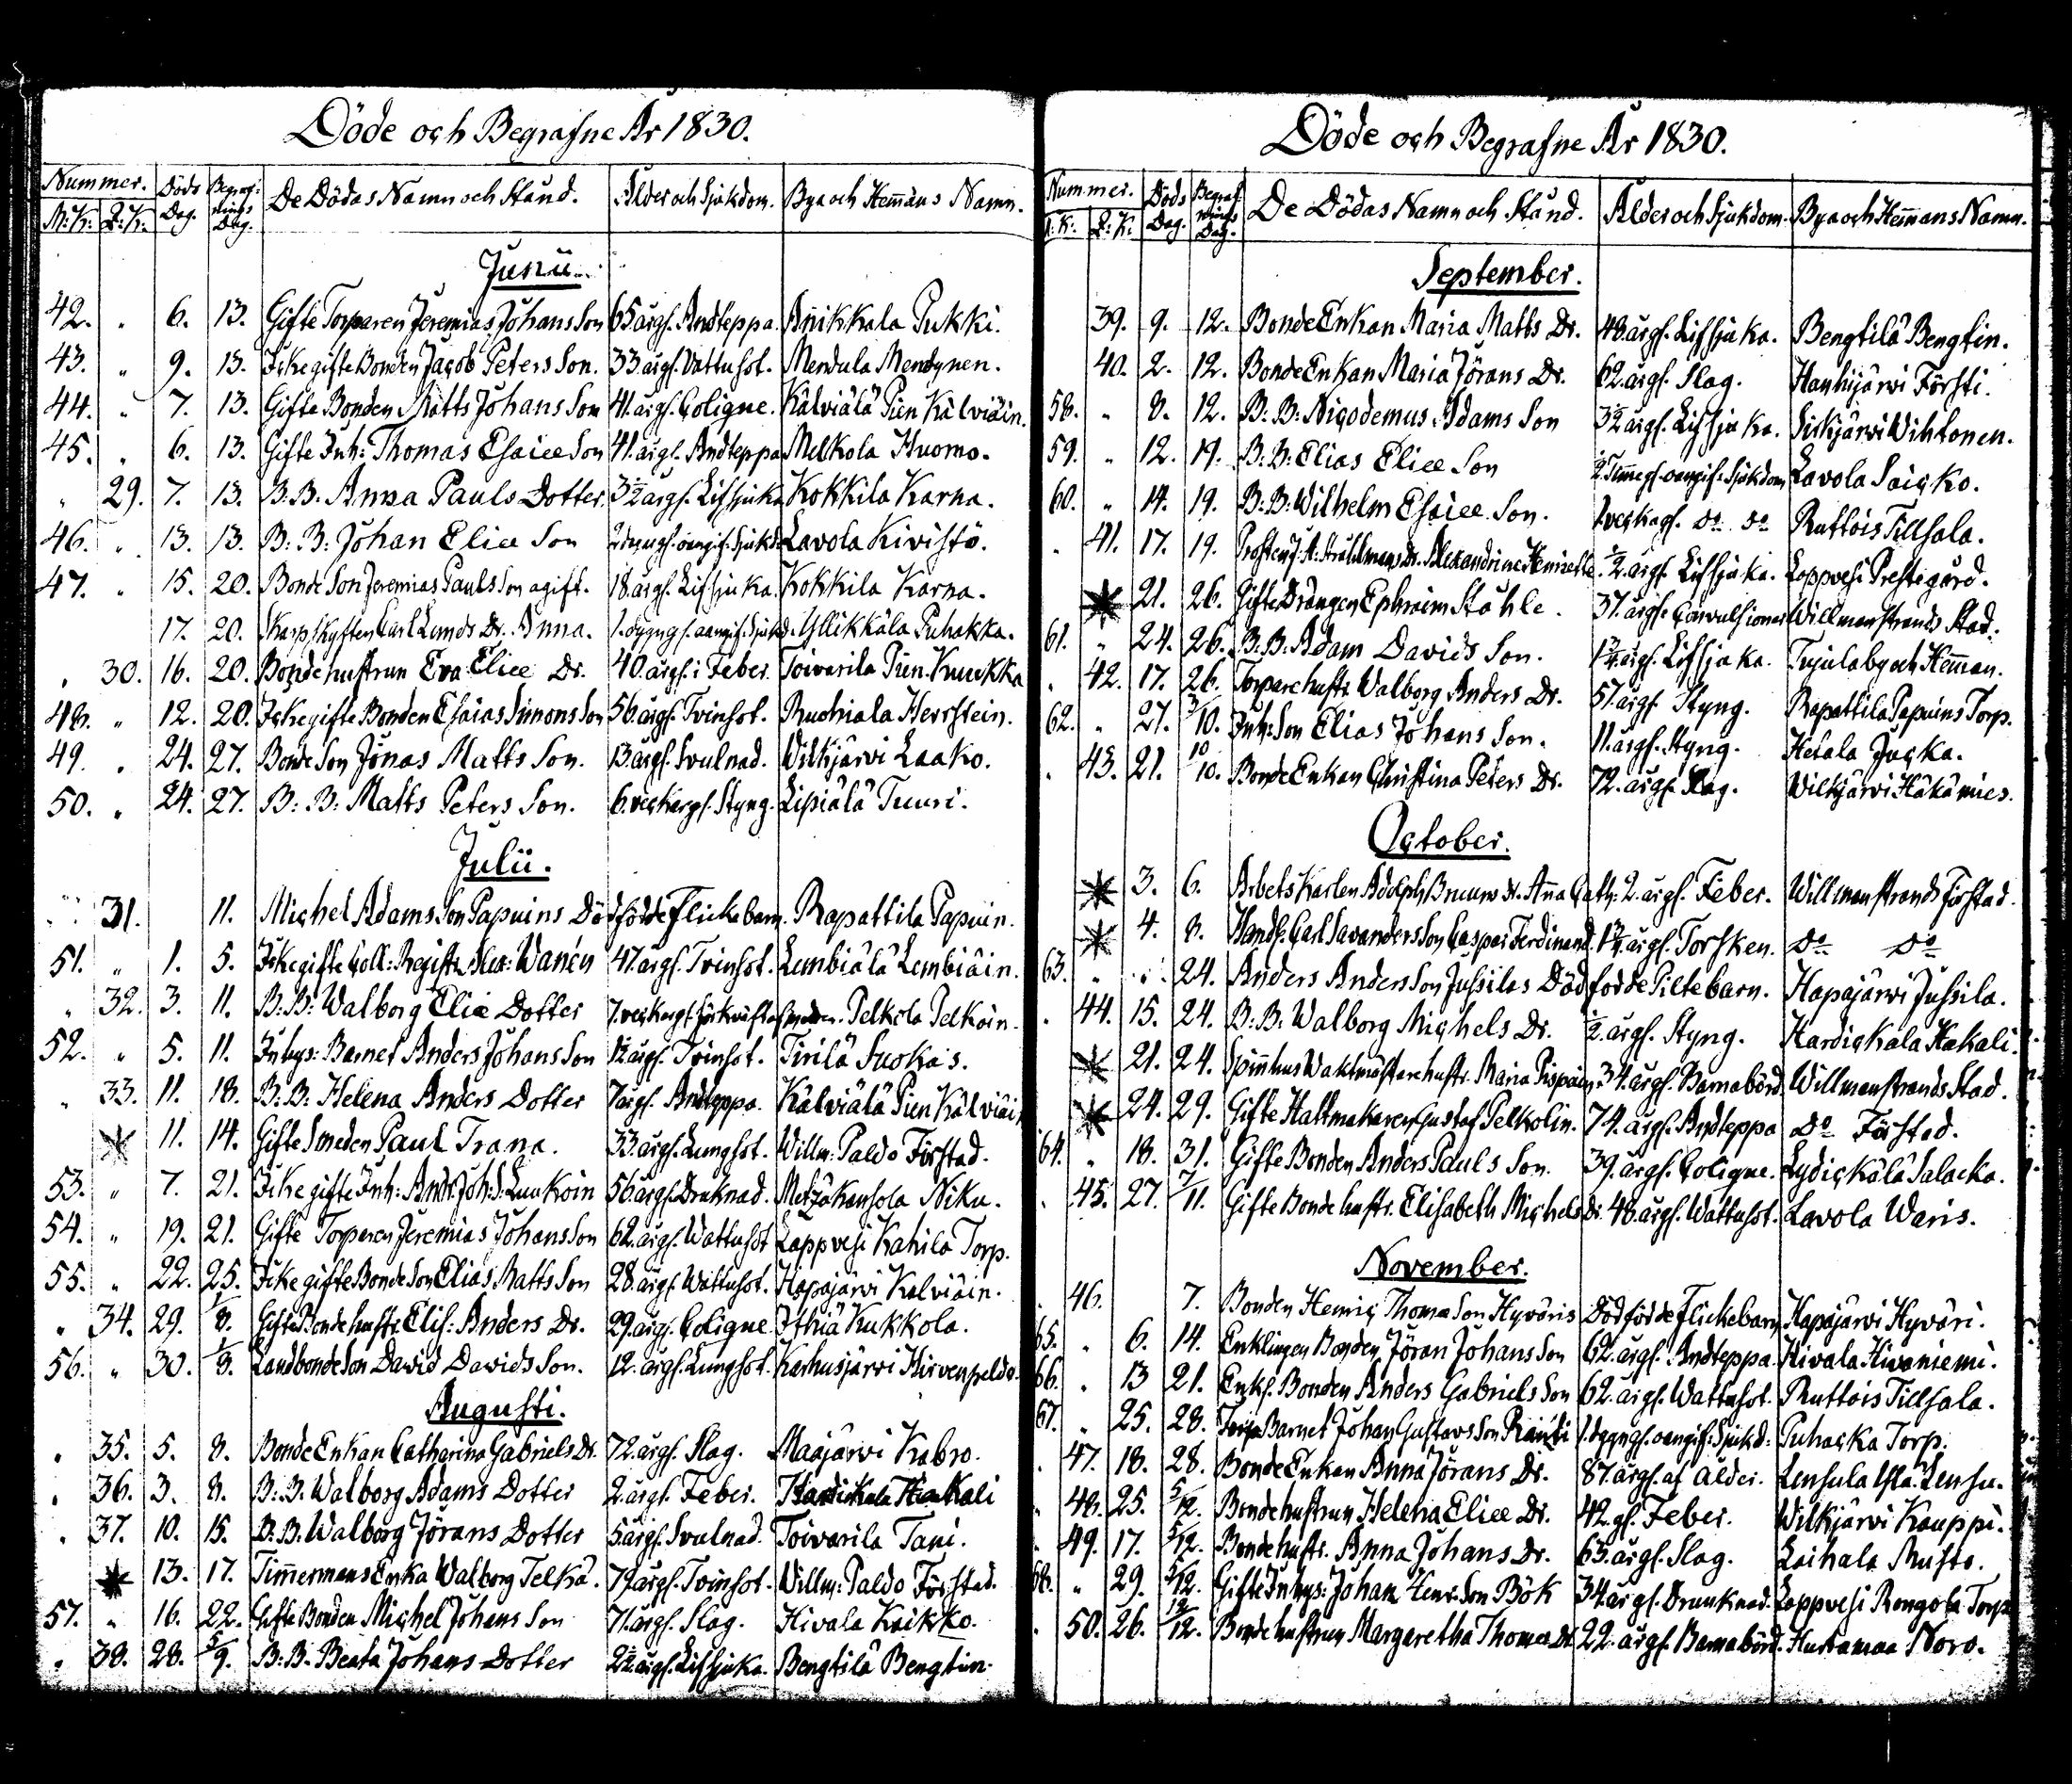 Döde och Begrafne År 1830.
Nummer. Döds Dag. Begraf: nings Dag. De Dödas Namn och Stånd. Ålder och Sjukdom. Bya och Hemãns Namn.
M: K: Q: K:
Junii.
42. " 6. 13. Gifte Torparen Jeremias Johans Son 65 årgl. Andteppa. Anikkala Pukki.
43. " 9. 13. Icke gifte Bonden Jacob Peters Son. 33 årgl. Vattusot. Mendula Mendynen.
44. " 7. 13. Gifte Bonden Matts Johans Son 41. årgl. Coligue. Kälviälä Pien Kälviäin.
45. " 6. 13. Gifte Inh: Thomas Esaiæ Son 41. årgl. Andteppa Melkola Huomo.
" 29. 7. 13. B: B: Anna Pauls Dotter. 3 1/2 årgl. Lifsjuka Kokkila Karna.
46. " 13. 13. B: B: Johan Eliæ Son oangif: Sjukd: Lavola Kivistö.
47. " 15. 20. Bonde Son Jeremias Pauls Son agift. 18. årgl. Lifsjuka. Kokkila Karna.
17. 20. Skarpskytten Carl Lunds Dr. Anna. 1. dygngl. oangif: Sjukd. Yllikkälä Puhakka.
" 30. 16. 20. Bondehustrun Eva Eliæ Dr. 40. årgl: Feber. Toivarila Pien-Kuukka
48. " 12. 20. Icke gifte Bonden Esaias Simons Son 56. årgl. Tvinsot. Ruohiala Herrstein.
49. " 24. 27. Bonde Son Jonas Matts Son. 13. årgl. Svulnad. Wilkjärvi Laako.
50. " 24. 27. B: B: Matts Peters Son. 6. veckorgl. Styng. Lipiälä Tuuri.
Julii.
31. 11. Michel Adams Son Papuins Dödfödde Flickebarn. Rapattila Papuin.
51. " 1. 5. Icke gifte Coll: Registr. Alex: Wanén 47. årgl. Tvinsot. Lembiälä Lembiäin.
" 32. 3. 11. B: B: Walborg Eliæ Dotter 7. veckorgl. Pelkola Pelkoin.
52. " 5. 11. Inhys: Barnet Anders Johans Son 1 1/2 årgl. Tvinsot. Tirilä Suokas.
" 33. 11. 18. B: B: Helena Anders Dotter 7 årgl. Andteppa. Kälviälä Pien Kälviäin
11. 14. Gifte Smeden Paul Trana. 33. årgl. Lungsot. Willm: Paldo Förstad.
53. " 7. 21. Icke gifte Inh: Andr: Joh: S: Luukoin 56 årgl. Druknad. Metzäkansola Niku.
54. " 19. 21. Gifte Torparen Jeremias Johans Son 62. årgl. Wattusot Lappvesi Kahila Torp.
55. " 22. 25. Icke gifte Bonde Son Elias Matts Son 28. årgl. Wattusot. Hapajärvi Kalviäin.
" 34. 29. 1/8. Gifte Bondehustr. Elis: Anders Dr. 29. årgl. Coligue Ithiä Kukkola.
56. " 30. 1/8. Landbonde Son David Davids Son. 12. årgl. Lungsot. Karhusjärvi Hirvenpeldo.
Augusti.
" 35. 5. 8. Bonde Enkan Catharina Gabriels Dr. 72. årgl. Slag. Maajärvi Kabro.
" 36. 3. 8. B: B. Walborg Adams Dotter 2. årgl. Feber. Hardikkala Hakali
" 37. 10. 15. B: B. Walborg Jörans Dotter 5. årgl. Svulnad. Toivarila Tani.
13. 17. Tim̃ermans Enka Walborg Telkä. 79 årgl. Tvinsot. Willm: Paldo Förstad.
57. " 16. 22. Gifte Bonden Michel Johans Son 71. årgl. Slag. Hivala Koikko.
" 38. 28. 5/9. B: B. Beata Johans Dotter 2 1/2 årgl. Lifsjuka. Bengtilä Bengtin.
Döde och Begrafne År 1830.
Nummer. Döds Dag. Begraf: nings Dag. De Dödas Namn och Stånd. Ålder och Sjukdom. Bya och Hem̃ans Namn.
M: K: Q: K:
September.
39. 9. 12. Bonde Enkan Maria Matts Dr. 48. årgl. Lifsjuka. Bengtilä Bengtin.
40. 2. 12. Bonde Enkan Maria Jörans Dr. 62. årgl. Slag. Hanhijärvi Försti.
58. " 8. 12. B: B: Nicodemus Adams Son 3 1/2 årgl. Lifsjuka. Sirkjärvi Wihtonen.
59. " 12. 19. B: B: Elias Eliæ Son oangif: Sjukdom Lavola Saicko.
60. " 14. 19. B: B: Wilhelm Esaiæ Son. 1 veckagl. Do Do Ruttois Tillsala.
" 41. 17. 19. Prosten J: A: Stråhlmans Dr. Alexandrine Henriette. 1/2. årgl. Lifsjuka. Lappvesi Prestegård.
21. 26. Gifte Drängen Ephraim Ståhle. 37. årgl. Convulsioner Willmanstrands Stad.
61. " 24. 26. B: B: Adam Davids Son. 1 3/4 årgl. Lifsjuka. Tujula by och Hem̃an.
" 42. 17. 26. Torparehustr. Walborg Anders Dr. 57. årgl. Styng. Rapattila Papuins Torp.
62. " 27. 3/10. Inh: Son Elias Johans Son. 11. årgl. Styng. Hetala Jucka.
" 43. 21. 10/10. Bonde Enkan Christina Peters Dr. 72. årgl. Slag. Wilkjärvi Häkämies.
October.
3. 6. Arbets Karlen Adolph Bruuns dr. Anna Cath: 2. årgl. Feber. Willmanstrands Förstad.
4. 8. Handl: Carl Savanders Son Caspar Ferdinand. 1 3/4 årgl. Torsken. Do Do
63. " " 24. Anders Anders Son Jussilas Dödfödde Piltebarn. Hapajärvi Jussila.
" 44. 15. 24. B: B. Walborg Michels Dr. 1/2. årgl. Styng. Hardickala Hakali.
21. 24. Spin̄hus Waktmästarehustr. Maria Pispain. 34. årgl. Barnabörd. Willmanstrands Stad.
24. 29. Gifte Hattmakaren Gustaf Pelkolin. 74. årgl. Andteppa Do Förstad.
64. " 18. 31. Gifte Bonden Anders Pauls Son. 39. årgl. Coligue. Lydickälä Salacka.
" 45. 27. 7/11. Gifte Bondehustr. Elisabeth Michels Dr. 48. årgl. Wattusot. Lavola Waris.
November.
46. 7. Bonden Henric Thomæ Son Hyväris Dödfödde Flickebarn. Hapajärvi Hyväri.
65. " 6. 14. Enklingen Bonden Jöran Johans Son 62. årgl. Andteppa. Hivala Hivaniemi.
66. " 13 21. Enkl. Bonden Anders Gabriels Son 62. årgl. Wattusot. Ruttois Tillsala.
67. " 25. 28. Torp. Barnet Johan Gustavs Son 1. dygngl. oangif: Sjukd: Puhacka Torp.
" 47. 18. 28. Bonde Enkan Anna Jörans Dr. 87. årgl. af Ålder. Lensula Lensu.
" 48. 25. 5/12. Bondehustrun Helena Eliæ Dr. 42. gl. Feber. Wilkjärvi Kauppi.
" 49. 17. 5/12. Bondehustr. Anna Johans Dr. 63. årgl. Slag. Laihala Musto.
68. " 29. 5/12. Gifte Inhys: Johan Henr. Son Bök 34. årgl. Drunknad. Lappvesi Rongola Torp
" 50. 26. 12/12. Bondehustrun Margaretha Thomæ Dr. 22. årgl. Barnabörd. Hurtamaa Noro.